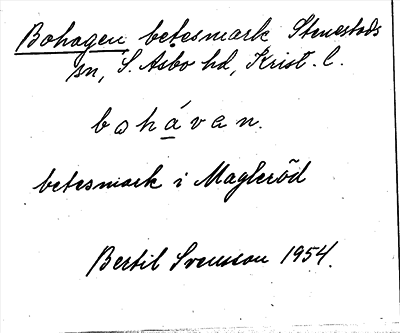 Bohagen betesmark Stenestads
sn, S. Åsbo hd, Krist. l.
bohávan.
betesmark i Magleröd
Bertil Svensson 1954.